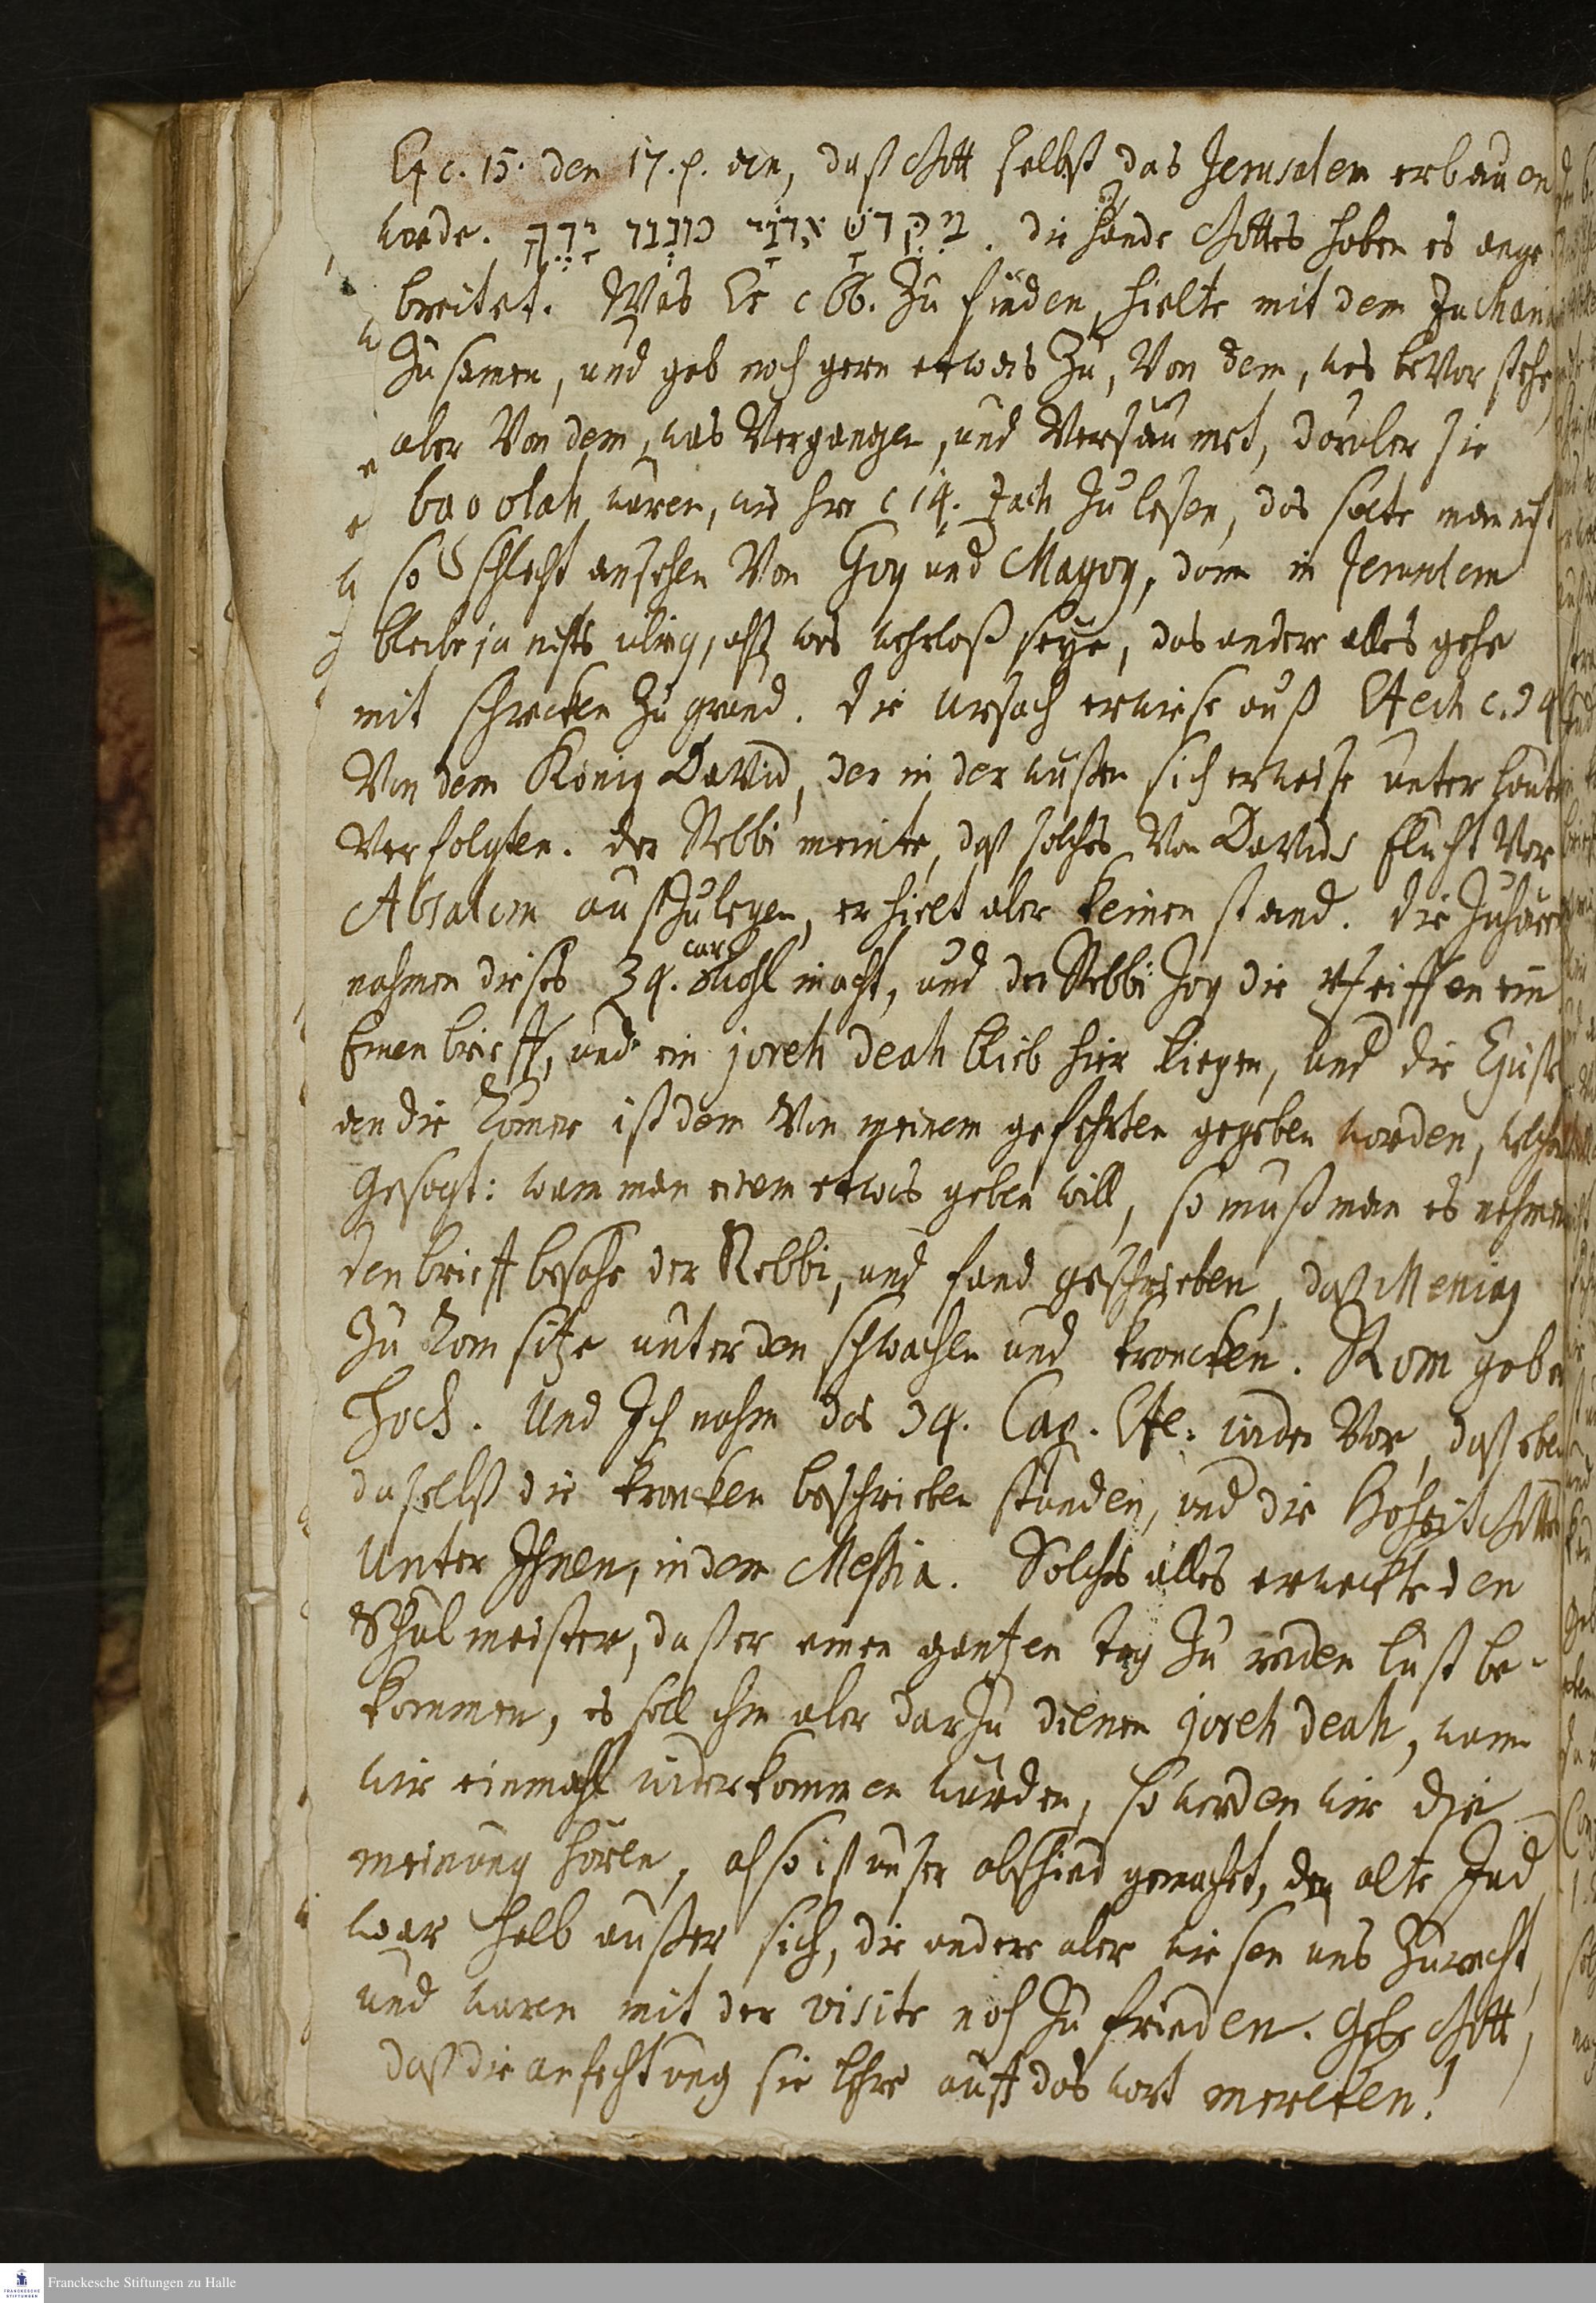 Ex c. 15. den 17. v. an, daß Gott selbst das Jerusalem erbauen
werde. מִקְּדָשׁ אֲדֹנָי כּוֹנְנוּ יָדֶיךָ. die Hände Gottes haben es ange
breitet. Was Es c 66. zu finden, hielte mit dem Zachar
zusamen, und gab noch gern etwas zu, von dem, was bevor stehe
aber von dem, was vergangen, und versäumet, darüber sie
wären, wie hier c 14. Zach zu lesen, das solte man nicht
so schlecht ansehen von Gog und Magog, dann in Jerusalem
bleibe ja nichts übrig, alß was wehrloß seye, das andere alles gehe
mit schrecken zu grund. die ursach erwiese auß Ezech c. 34
von dem König David, der in der wüsten sich erweise unter lauter
verfolgten. der Rebbi meinte, daß solches von Davids flucht vor
Absalom außzulegen, er hielt aber keinen stand. die Zuhörer
nahmen dieses 34. cap wohl in acht, und der Rebbi zog die Pfeiffen ein
Einen brieff, und ein joreh deah blieb hier liegen, und die Epistel
an die Römer ist dem von meinem gefehrten gegeben worden, welcher
gesagt: wann man einem etwas geben will, so muß man es nehmen
den brieff besahe der Rebbi, und fand geschrieben, daß Messias
zu Rom sitze unter den schwachen und krancken. Rom gebe
hoch. Und Ich nahm das 34. Cap. Eze: wider vor, daß eben
daselbst die krancken beschrieben stünden, und die Hoheit Gottes
unter Ihnen, in dem Messia. Solches alles erweckte den
Schulmeister, daß er einen gantzen tag zu reden lust be-
kommen, es soll ihm aber darzu dienen joreh deah, wann
wir einmahl widerkommen würden, so werden wir die
meinung hören, also ist unser abschied gemacht, der alte Jud
war halb außer sich, die andere aber wiesen uns zurecht
und waren mit der visite noch zu frieden. Gebe Gott,
daß die anfechtung sie lehre auff das wort mercken!
Franckesche Stiftungen zu Halle